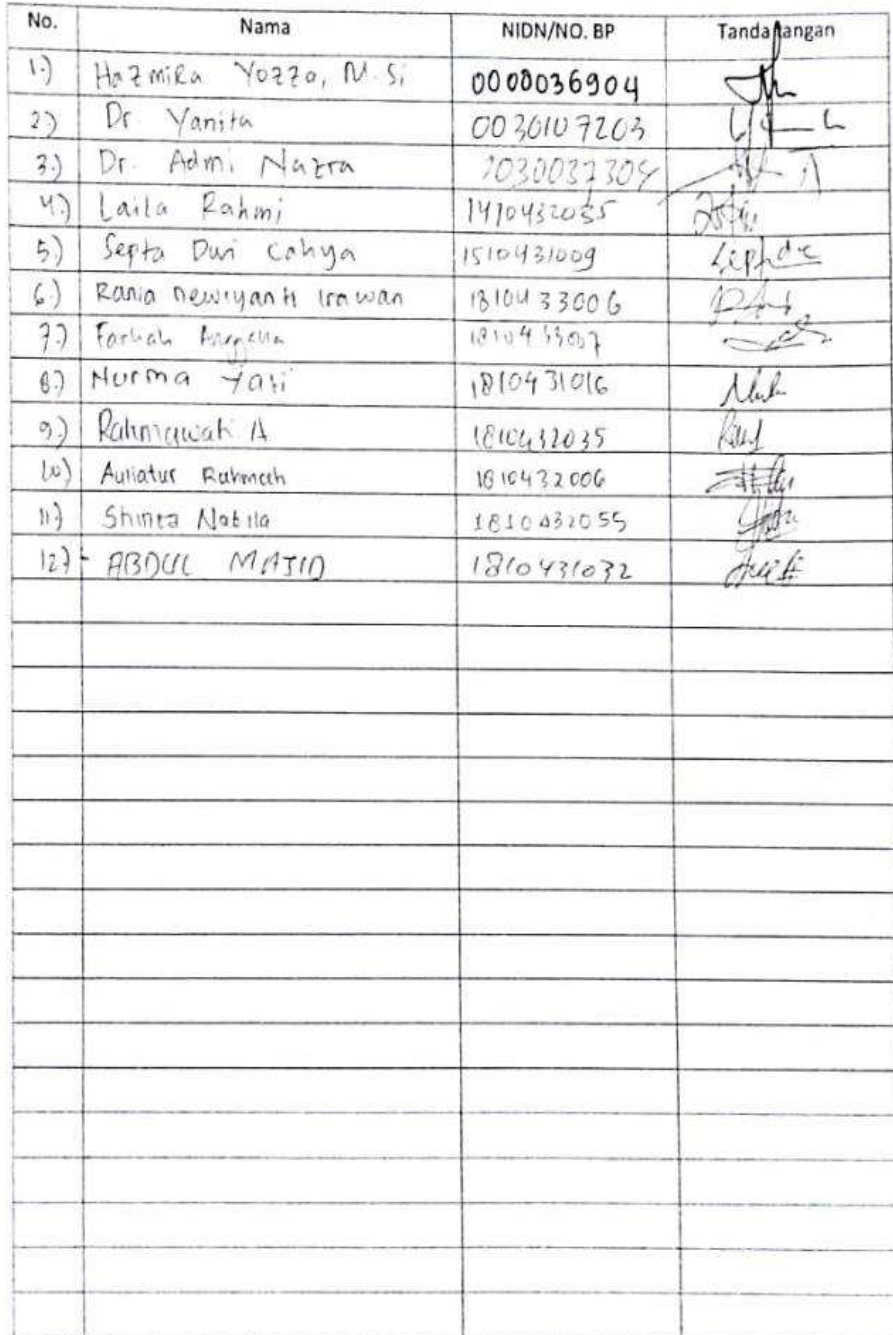 No. Nama NIDN/NO. BP Tanda tangan
1.) Hazmira Yozza, M.Si 0000036904
2.) Dr. Yanita 0030107203
3.) Dr. Admi Nazra
4.) Laila Rahmi 1410432035
5.) Septa Dwi Cahya 1510431009
6.) Rania Dewiyanti Irawan 1810433006
7.) Farhah
8.) Nurma Yati 1810431016
9.) Rahmawati A 1810432035
10) Auliatur Rahmah 1810432006
11) Shinta Nabila 1810432055
12) ABDUL MAJID 1810431032